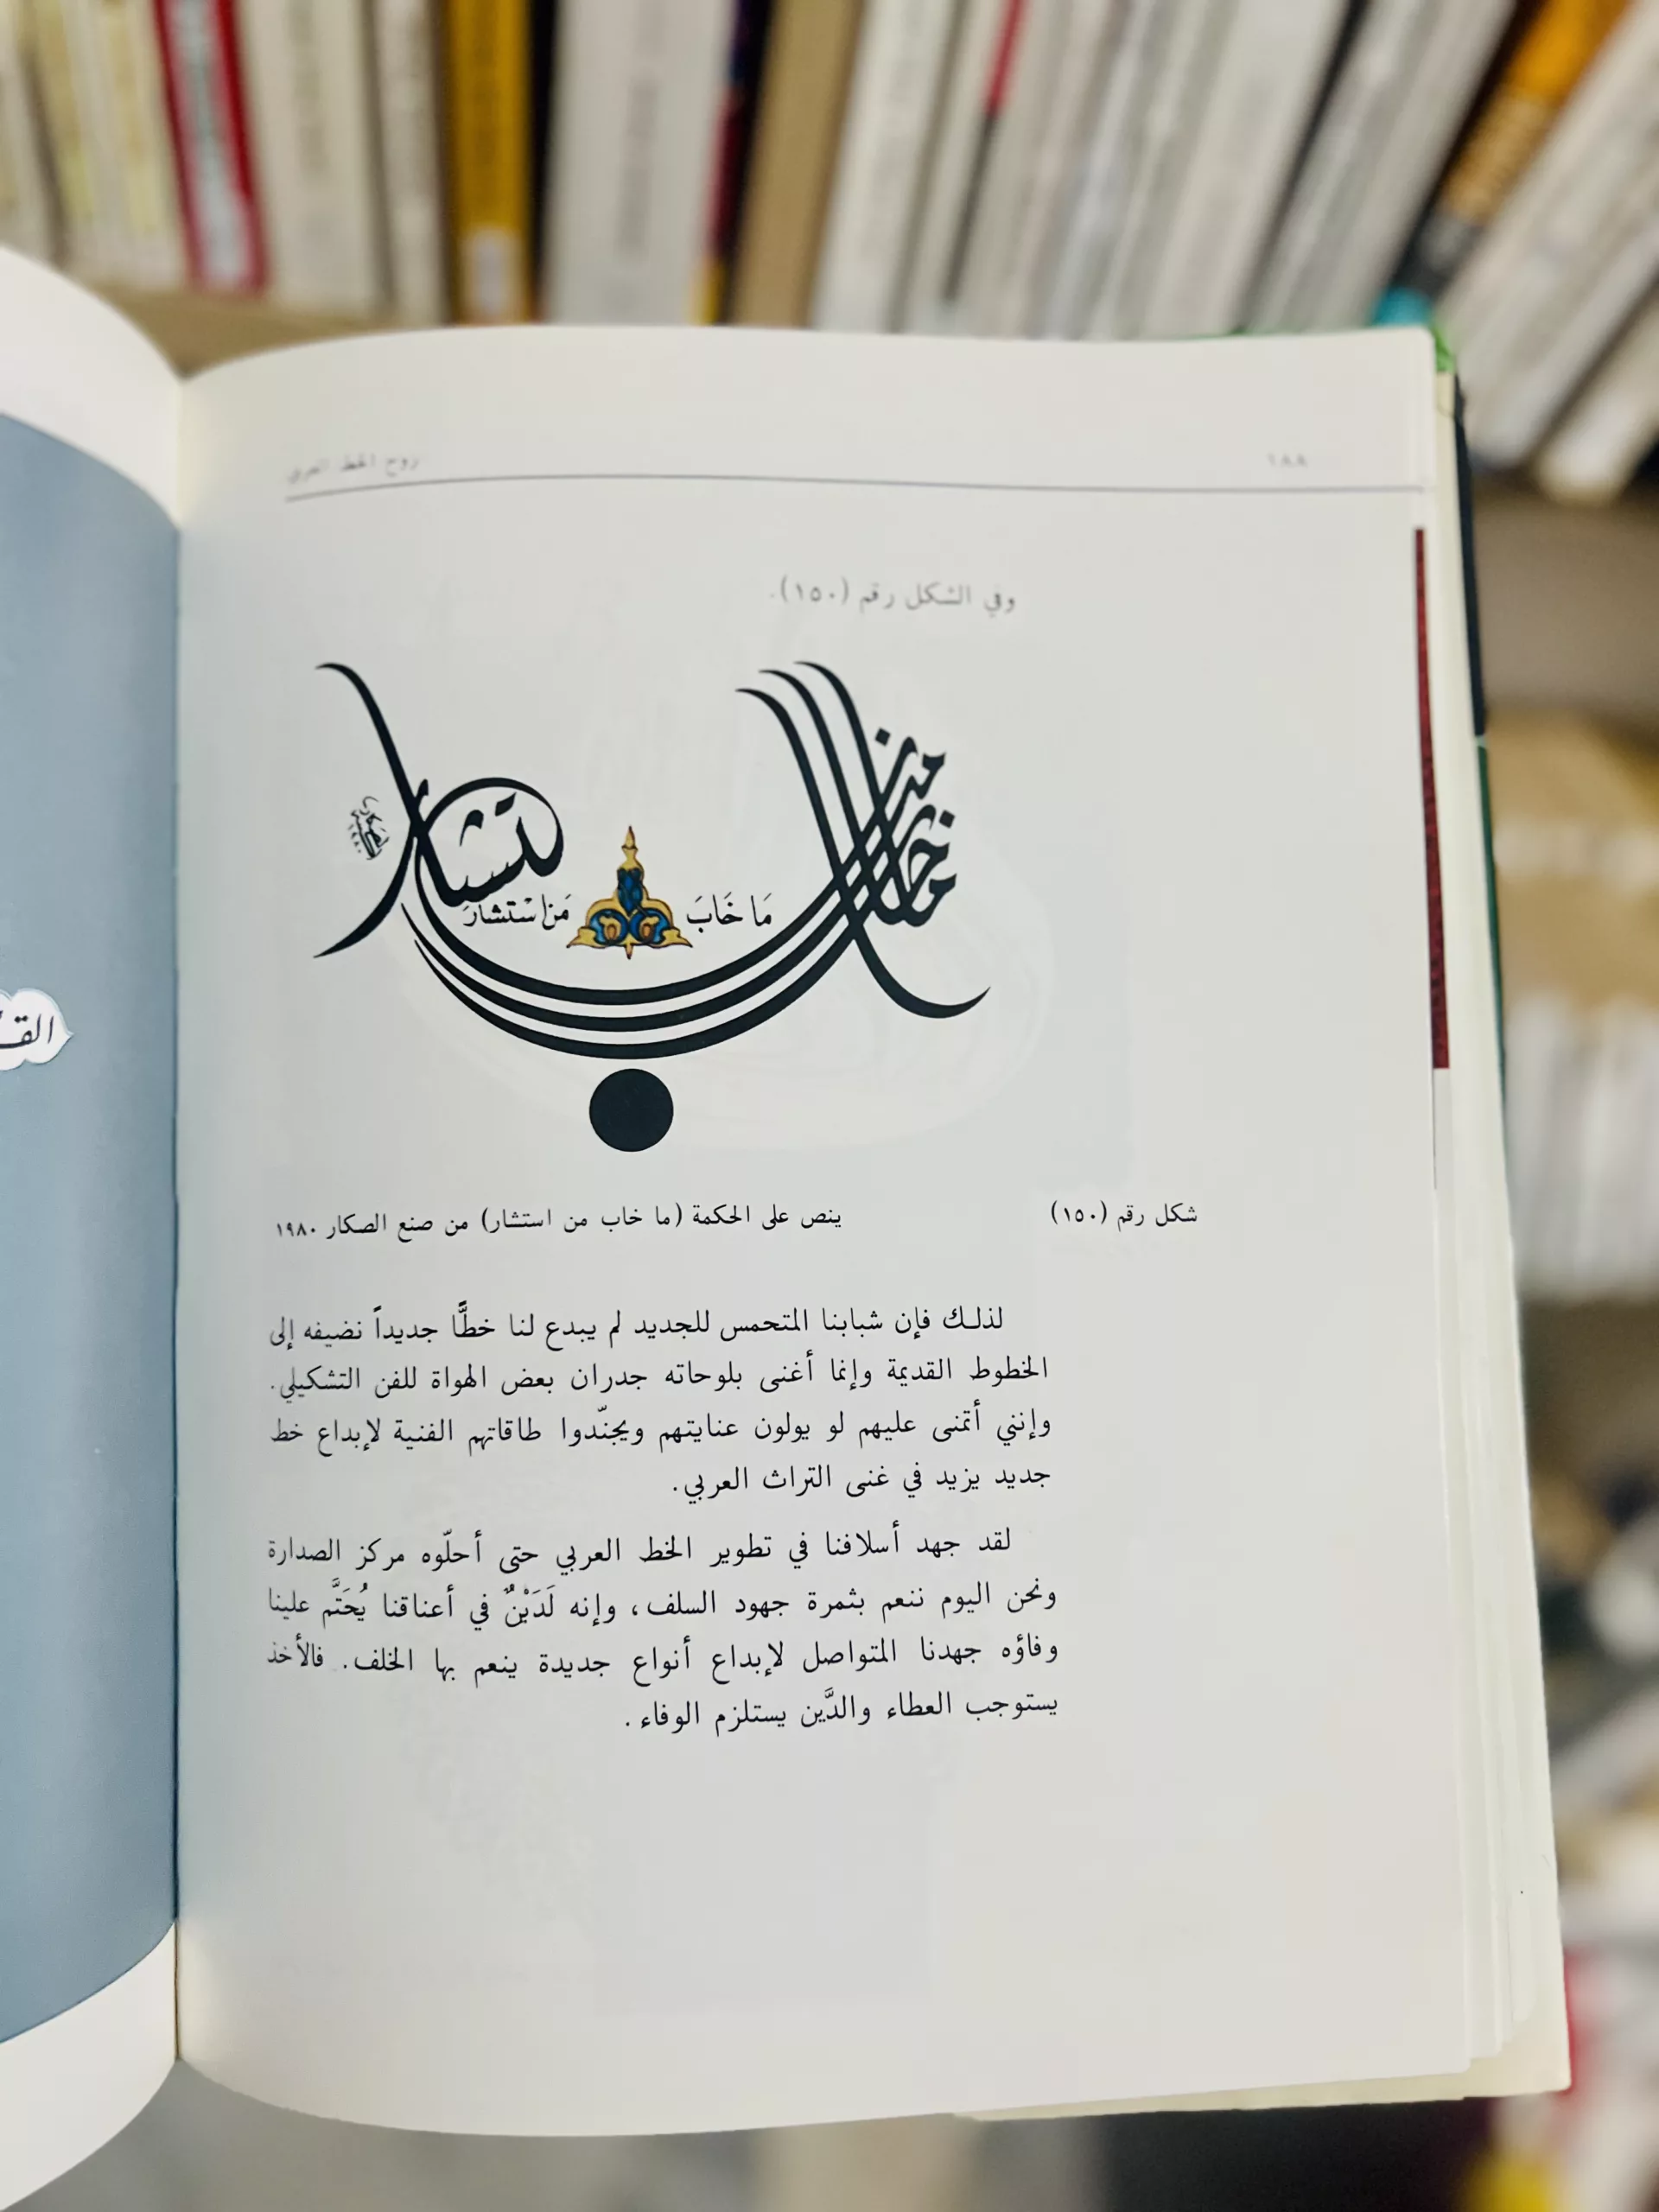 ١٨٨
روح الخط العربي
وفي الشكل رقم (١٥٠).
مَا خَابَ مَن اسْتشارَ
شكل رقم (١٥٠) ينص على الحكمة (ما خاب من استشار) من صنع الصكار ١٩٨٠
لذلك فإن شبابنا المتحمس للجديد لم يبدع لنا خطًّا جديداً نضيفه إلى
الخطوط القديمة وإنما أغنى بلوحاته جدران بعض الهواة للفن التشكيلي.
وإنني أتمنى عليهم لو يولون عنايتهم ويجنّدوا طاقاتهم الفنية لإبداع خط
جديد يزيد في غنى التراث العربي.
لقد جهد أسلافنا في تطوير الخط العربي حتى أحلّوه مركز الصدارة
ونحن اليوم ننعم بثمرة جهود السلف، وإنه لَدَيْنٌ في أعناقنا يُحَتَّم علينا
وفاؤه جهدنا المتواصل لإبداع أنواع جديدة ينعم بها الخلف. فالأخذ
يستوجب العطاء والدَّين يستلزم الوفاء.